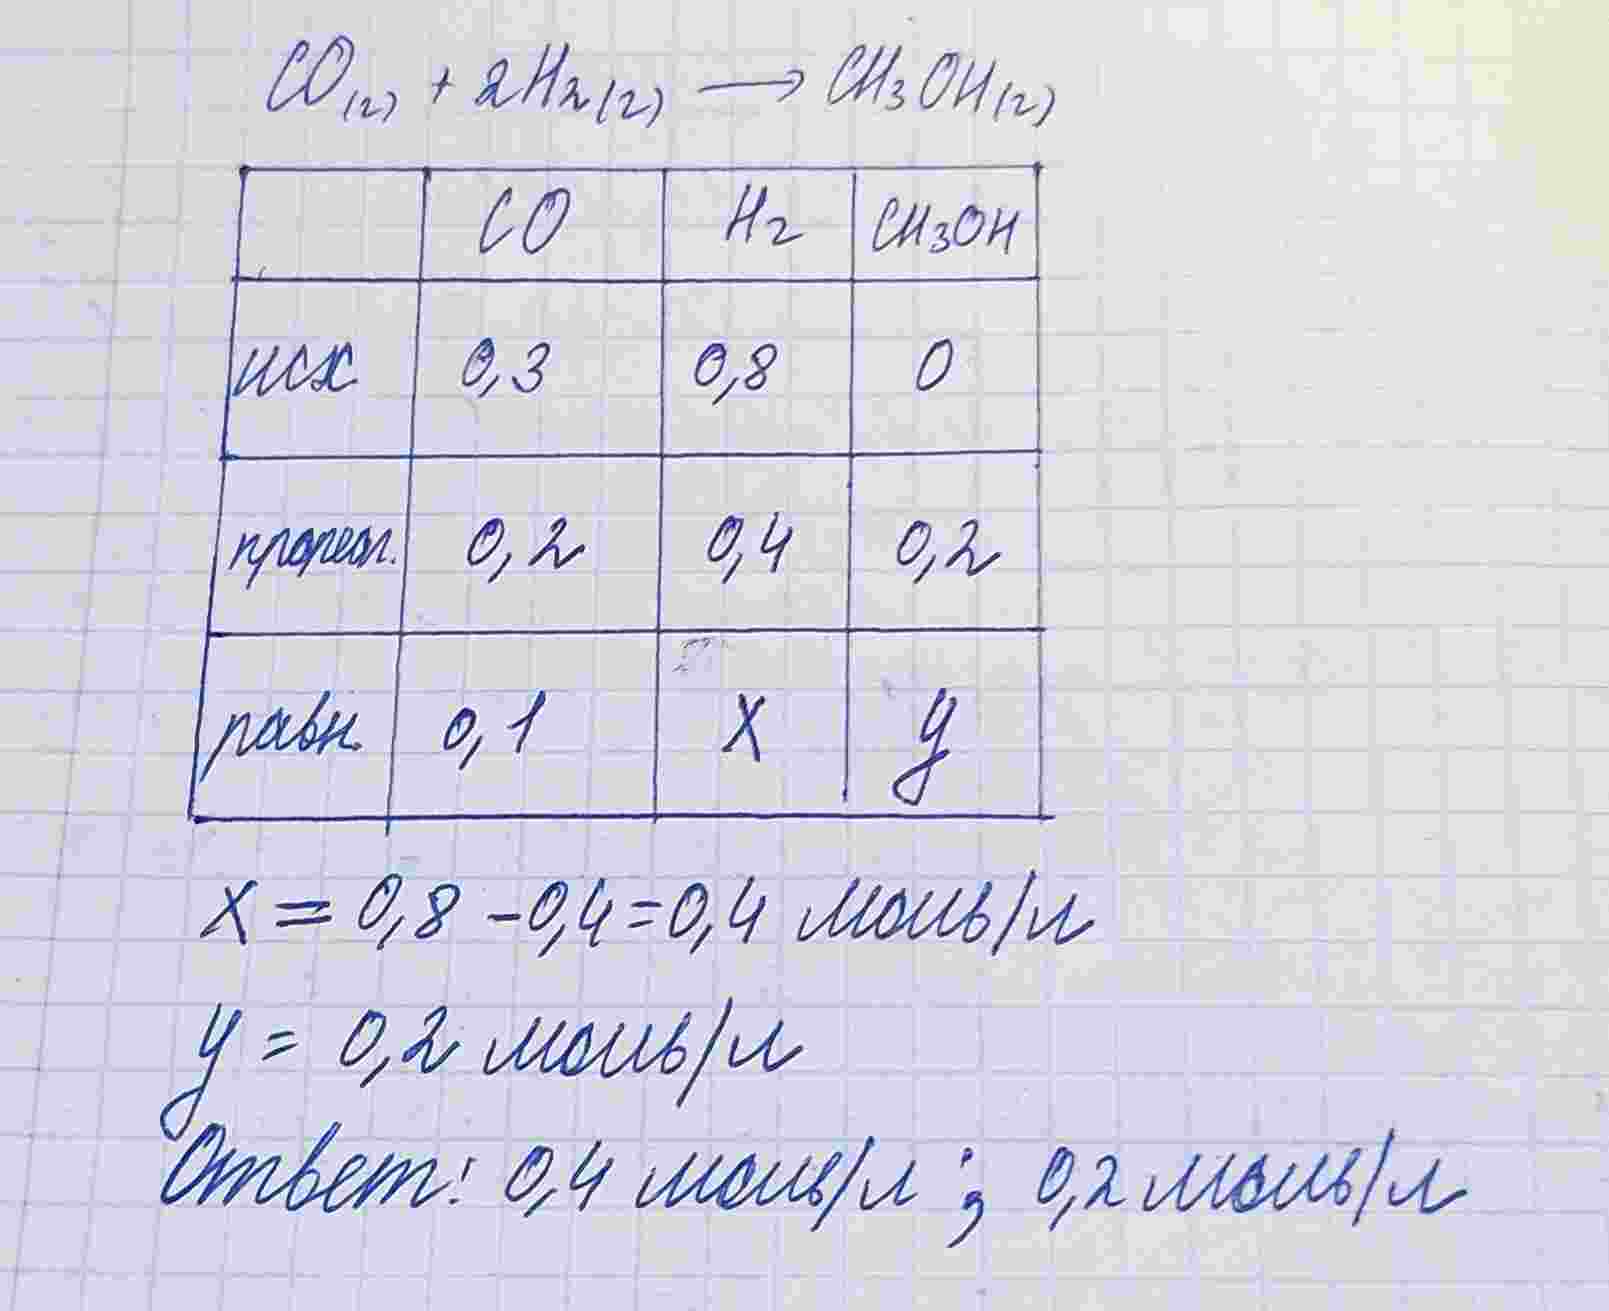 CO(г) + 2H₂(г) ⟶ CH₃OH(г)
CO H₂ CH₃OH
исх 0,3 0,8 0
прореаг. 0,2 0,4 0,2
равн. 0,1 X y
X = 0,8 - 0,4 = 0,4 моль/л
y = 0,2 моль/л
Ответ: 0,4 моль/л ; 0,2 моль/л